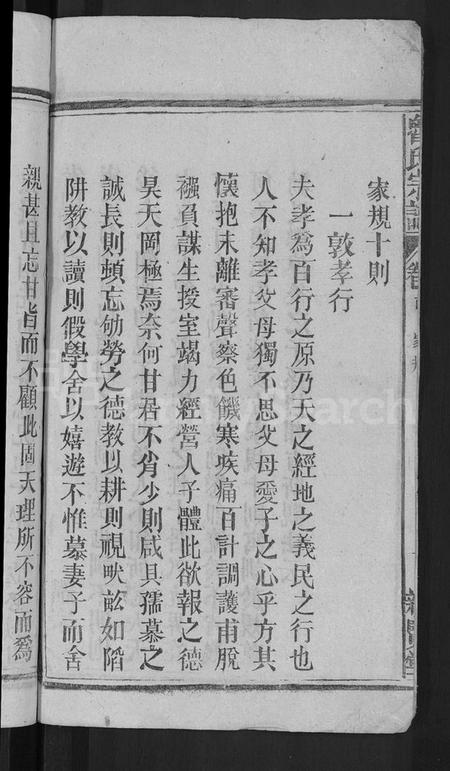 家規十則
一敦孝行
夫孝爲百行之原乃天之經地之義民之行也
人不知孝父母獨不思父母愛子之心乎方其
懷抱未離審聲察色饑寒疾痛百計調護甫脫
襁負謀生授室竭力經營人子體此欲報之德
昊天罔極焉奈何甘居不肖少則咸具孺慕之
誠長則頓忘劬勞之德教以耕則視畎畝如陷
阱教以讀則假學舍以嬉遊不惟慕妻子而舍
親甚且忘甘旨而不顧此固天理所不容而爲
氏宗譜
卷
家規